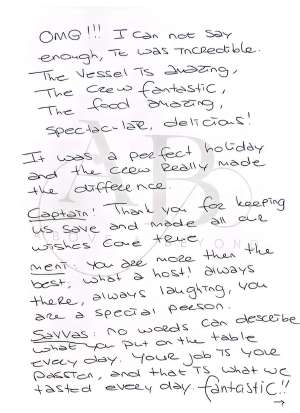 OMG!!! I can not say
enough, it was incredible.
The vessel is amazing,
The crew fantastic,
The food amazing,
spectacular, delicious!
It was a perfect holiday
and the crew really made
the difference.
Captain! Thank you for keeping
us save and made all our
wishes come true
meni: you are more then the
best, what a host! always
there, always laughing, you
are a special person.
Savvas: no words can describe
what you put on the table
every day. Your job is your
passion, and that is what we
tasted every day. fantastic!!
→